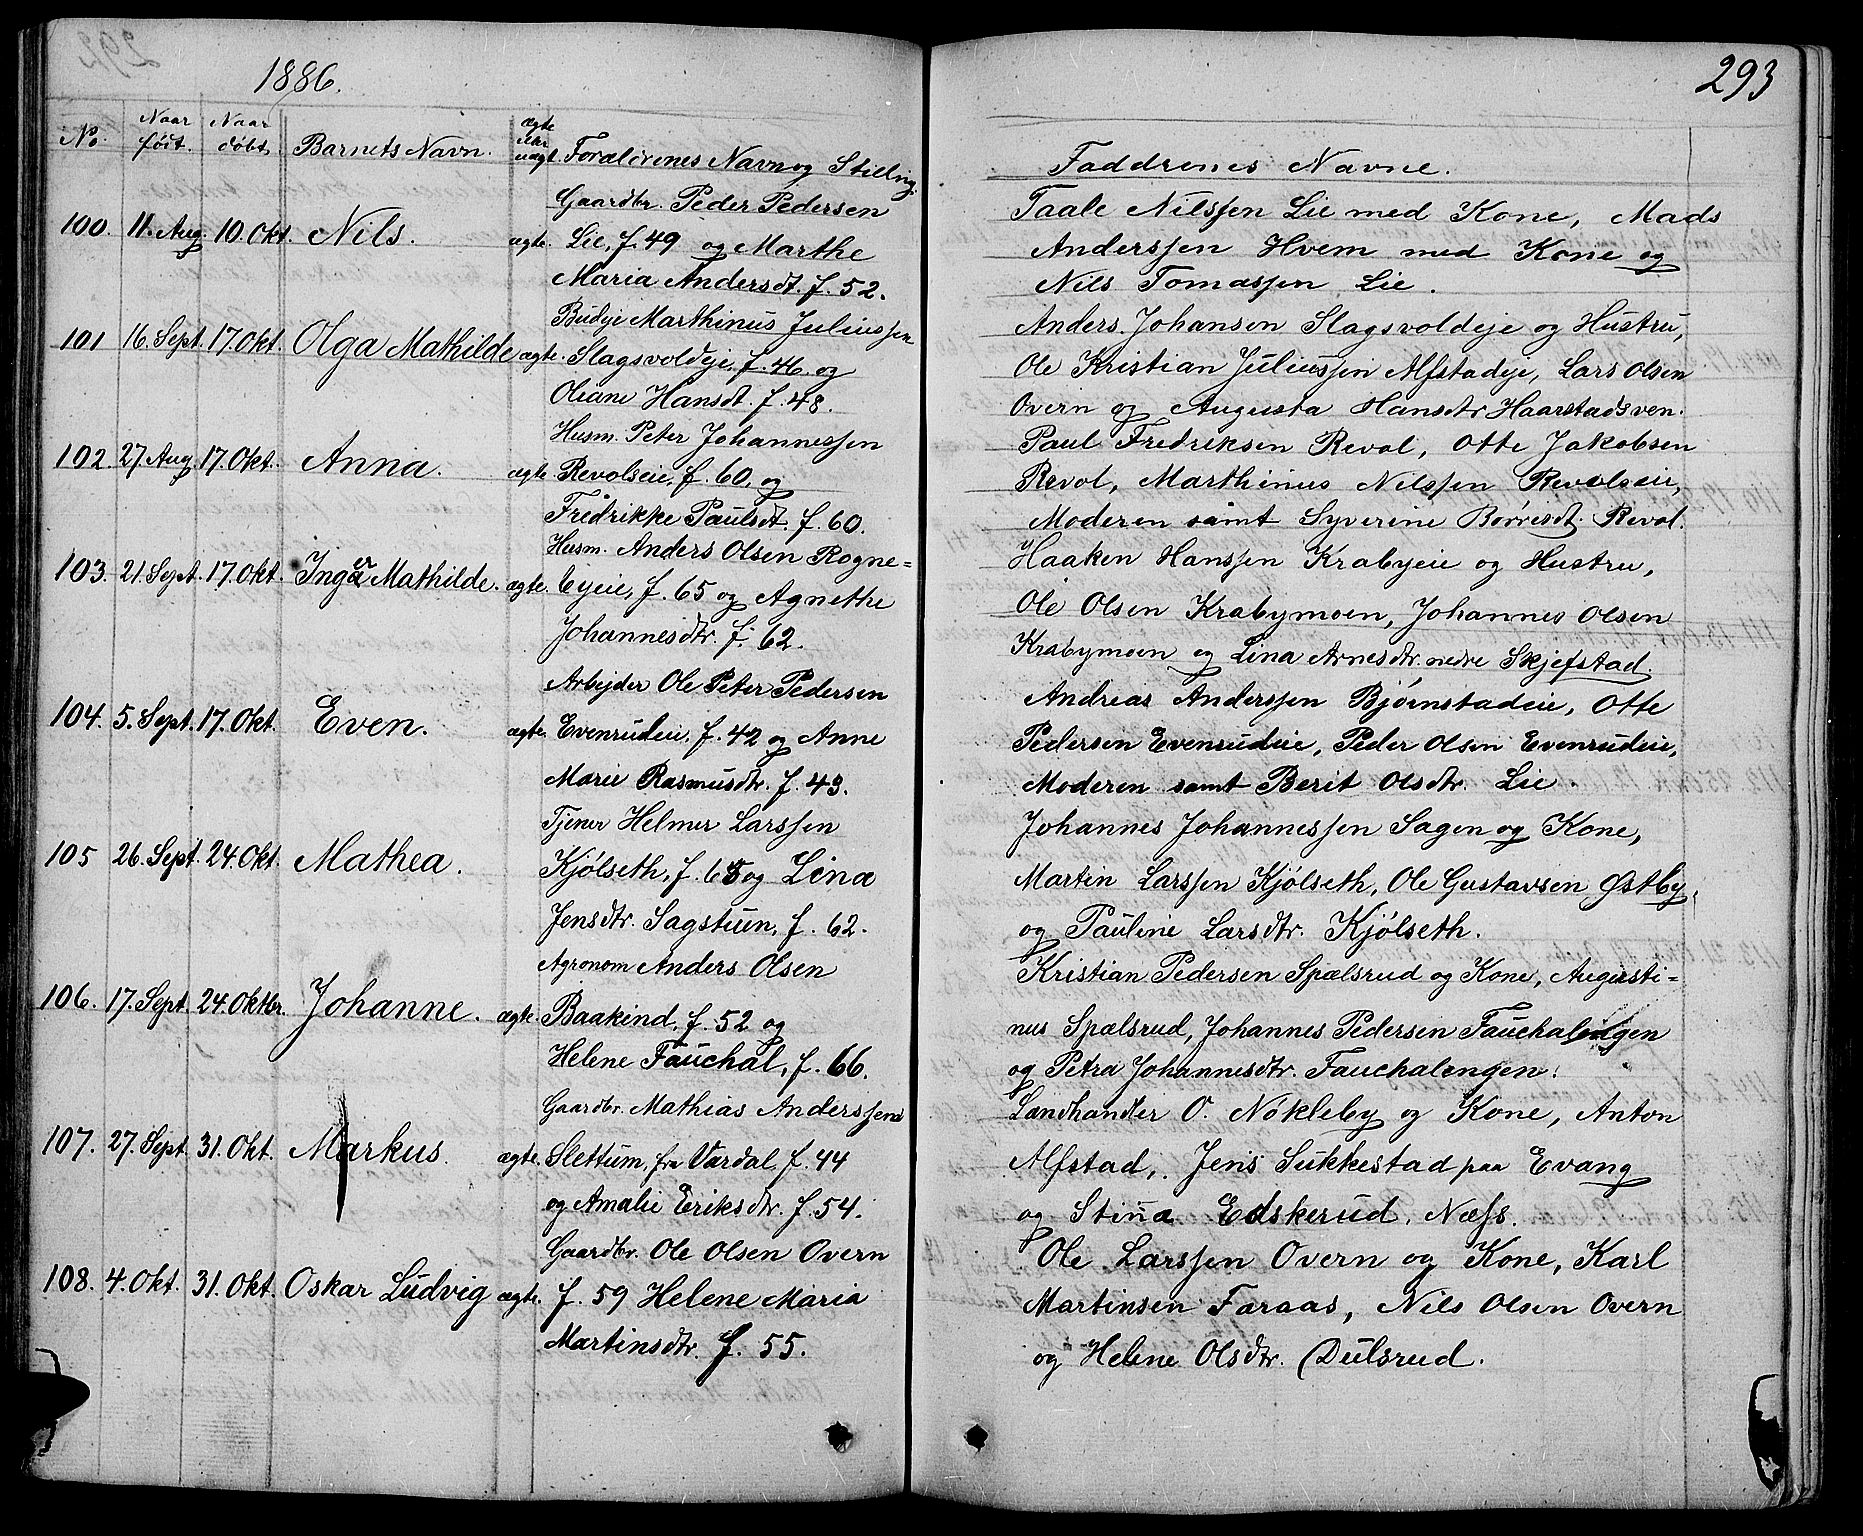 1886.
No. Naar født. Naar døbt. Barnets Navn. ægte eller uægt. Forældrenes Navn og Stilling.
Gaardbr. Peder Pedersen
100. 11. Aug. 10. Okt. Nils. ægte. Lie, f. 49 og Marthe
Maria Andersdt. f. 52.
Budeje Marthinus Juliussen
101 16. Sept. 17. Okt. Olga Mathilde ægte. Slagsvoldeje, f. 46. og
Oleane Hansdt. f. 48.
Husm. Peter Johannessen
102. 27 Aug. 17. Okt. Anna. ægte Revolseie, f. 60. og
Fredrikke Paulsdt. f. 60.
Husm. Anders Olsen Rogne=
103. 21. Sept. 17. Okt. Inger Mathilde. ægte. byeie, f. 65 og Agnethe
Johannesdtr. f. 62.
Arbejder Ole Peter Pedersen
104. 5. Sept. 17. Okt. Even. ægte. Evenrudeie, f. 42 og Anne
Marie Rasmusdtr. f. 43.
Tjener Helmer Larssen
105 26. Sept. 24. Okt. Mathea. Kjølseth, f. 65 og Lina
Jensdtr. Sagstuen, f. 62.
Agronom Anders Olsen
106. 17. Sept. 24. Oktbr. Johanne. ægte. Baakind, f. 52 og
Helene Fauchal, f. 66.
Gaardbr. Mathias Anderssen
107. 27. Sept. 31. Okt. Markus. ægte. Slettum, fra Vardal, f. 44
og Amalie Eriksdtr. f. 54.
Gaardbr. Ole Olsen Overn
108. 4. Okt. 31. Okt. Oskar Ludvig ægte. f. 59 Helene Maria
Martinsdtr. f. 55.
293
Faddrenes Navne.
Taale Nilssen Lie med Kone, Mads
Anderssen Hvem med Kone og
Nils Tomassen Lie.
Anders. Johansen Slagsvoldeje og Hustru,
Ole Kristian Juliussen Alfstadeje, Lars Olsen
Overn og Augusta Hansdtr Haarstadsven.
Paul Fredriksen Revol, Otte Jakobsen
Revol, Marthinus Nilssen Revolseie,
Moderen samt Syverine Børresdt. Revol.
Haaken Hanssen Krabyeie og Hustru,
Ole Olsen Krabymoen, Johannes Olsen
Krabymoen og Lina Arnesdtr. nedre Skjefstad.
Andreas Anderssen Bjørnstadeie, Otte
Pedersen Evenrudeie, Peder Olsen Evenrudeie,
Moderen samt Berit Olsdtr. Lie.
Johannes Johannessen Sagen og Kone,
Martin Larssen Kjølseth, Ole Gustavsen Østby,
og Pauline Larsdtr. Kjølseth.
Kristian Pedersen Spælsrud og Kone, Augusti=
nus Spælsrud, Johannes Pedersen Fauchalengen
og Petra Johannesdtr. Fauchalengen.
Landhandler O. Nøkleby og Kone, Anton
Alfstad, Jens Sukkestad paa Evang
og Stina Edskerud, Næss.
Ole Larssen Overn og Kone, Karl
Martinsen Faraas, Nils Olsen Overn
og Helene Olsdtr. Dulsrud.